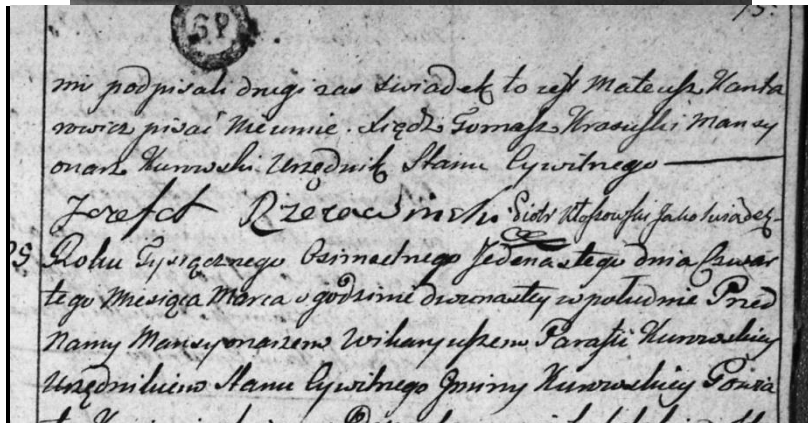 75.
GP
mi podpisali drugi zas swiadek to jest Mateusz Kanta
rowicz pisać Nieumie. Xiądz Tomasz Krasuski Mansy
onarz Kurowski Urzędnik Stanu Cywilnego
Jozef Piotr Kłossowski Jako swiadek
29 Roku Tysiącznego Osimsetnego Jedenastego dnia Czwar
tego Miesiąca Marca o godzinie dwunastey w południe Przed
Namy Mansyonarzem Wikaryuszem Parafii Kurowskiey
Urzędnikiem Stanu Cywilnego Gminy Kurowskiey Powia